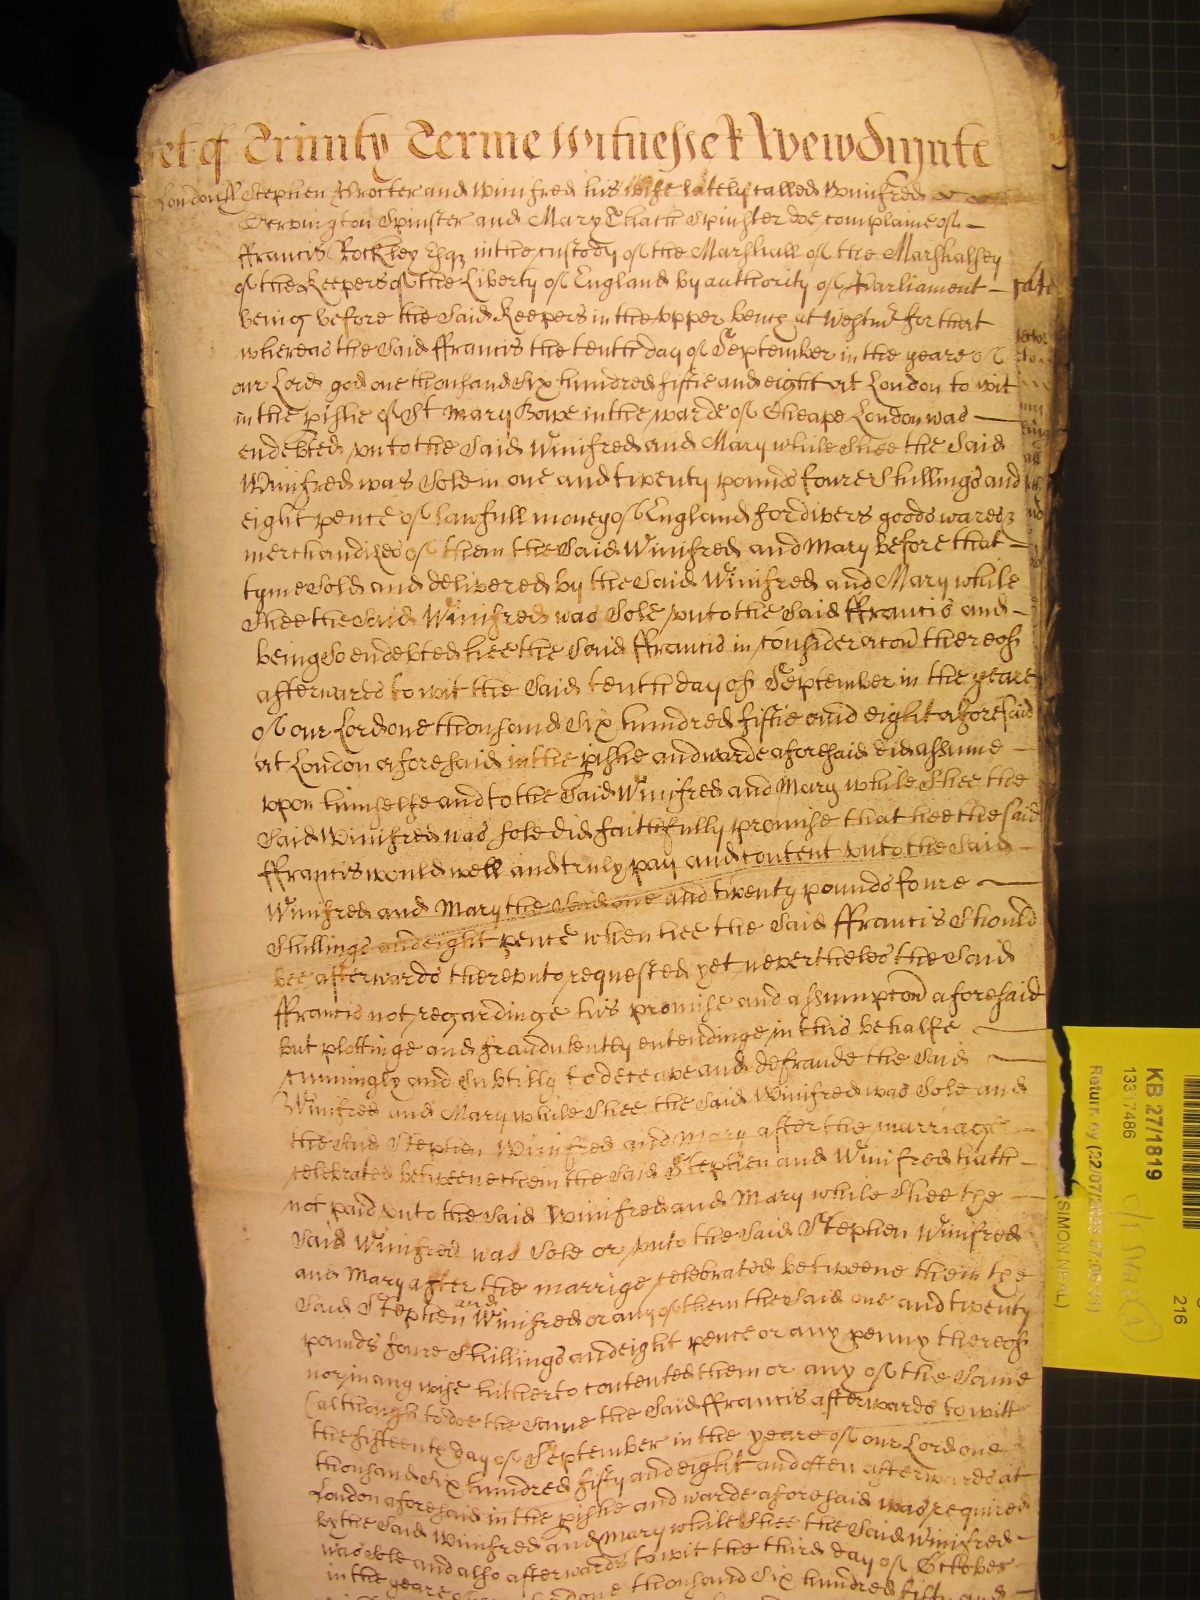 et of Trinity Terme Witnesse R Newdigate
London ss Stephen Procter and Winifred his wife lately called Winifred
Spinster and Mary Thach Spinster doe complaine of
ffrancis Rockley Esqz in the custody of the Marshall of the Marshalsey
of the Keepers of the Liberty of England by authority of Parliament
being before the said Keepers in the upper bench at Westmr for that
whereas the said ffrancis the tenth day of September in the yeare of
our Lord god one thousand six hundred fiftie and eight at London to wit
in the pishe of St Mary Bowe in the warde of Cheape London was
endebted unto the said Winifred and Mary while shee the said
Winifred was sole in one and twenty pounds foure shillings and
eight pence of lawfull money of England for divers goods wares &
merchandizes of them the said Winifred and Mary before that
tyme sold and delivered by the said Winifred and Mary while
shee the said Winifred was sole unto the said ffrancis and
being so endebted hee the said ffrancis in consideracon thereof
afterwards to wit the said tenth day of September in the yeare
of our Lord one thousand six hundred fiftie and eight aforesaid
at London aforesaid in the pishe and warde aforesaid did assume
upon himselfe and to the said Winifred and Mary while shee the
said Winifred was sole did faithfully promise that hee the said
ffrancis would well and truly pay and content unto the said
Winifred and Mary the said one and twenty pounds foure
shillings and eight pence when hee the said ffrancis should
bee afterwards thereunto requested yet neverthelesse the said
ffrancis not regardinge his promise and assumpcon aforesaid
but plottinge and fraudulently entendinge in this behalfe
cunningly and subtilly to deceave and defraude the said
Winifred and Mary while shee the said Winifred was sole and
the said Stephen Winifred and Mary after the marriage
celebrated betweene them the said Stephen and Winifred hath
not paid unto the said Winifred and Mary while shee the
said Winifred was sole or unto the said Stephen Winifred
and Mary after the marrige celebrated betweene them the
said Stephen and Winifred or any of them the said one and twenty
pounds foure shillings and eight pence or any penny thereof
nor in any wise hitherto contented them or any of the same
(although to doe the same the said ffrancis afterwards to witt
the fifteenth day of September in the yeare of our Lord one
thousand six hundred fifty and eight and often afterwards at
London aforesaid in the pishe and warde aforesaid was required
by the said Winifred and Mary while shee the said Winifred
was sole and also afterwards to wit the third day of October
in the yeare of our Lord one thousand six hundred fifty and
KB 27/1819
13317486
Return by (22/07/2023 07:00:01)
(SIMON NEAL)
216